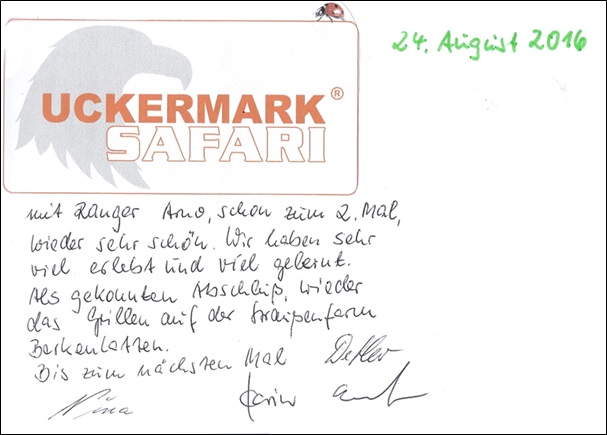 24. August 2016
UCKERMARK®
SAFARI
mit Ranger Arno, schon zum 2. Mal,
wieder sehr schön. Wir haben sehr
viel erlebt und viel gelernt.
Als gekonnten Abschluß, wieder
das Grillen auf der Straußenfarm
Berkenlatten.
Bis zum nächsten Mal Detlev
Nina Karin